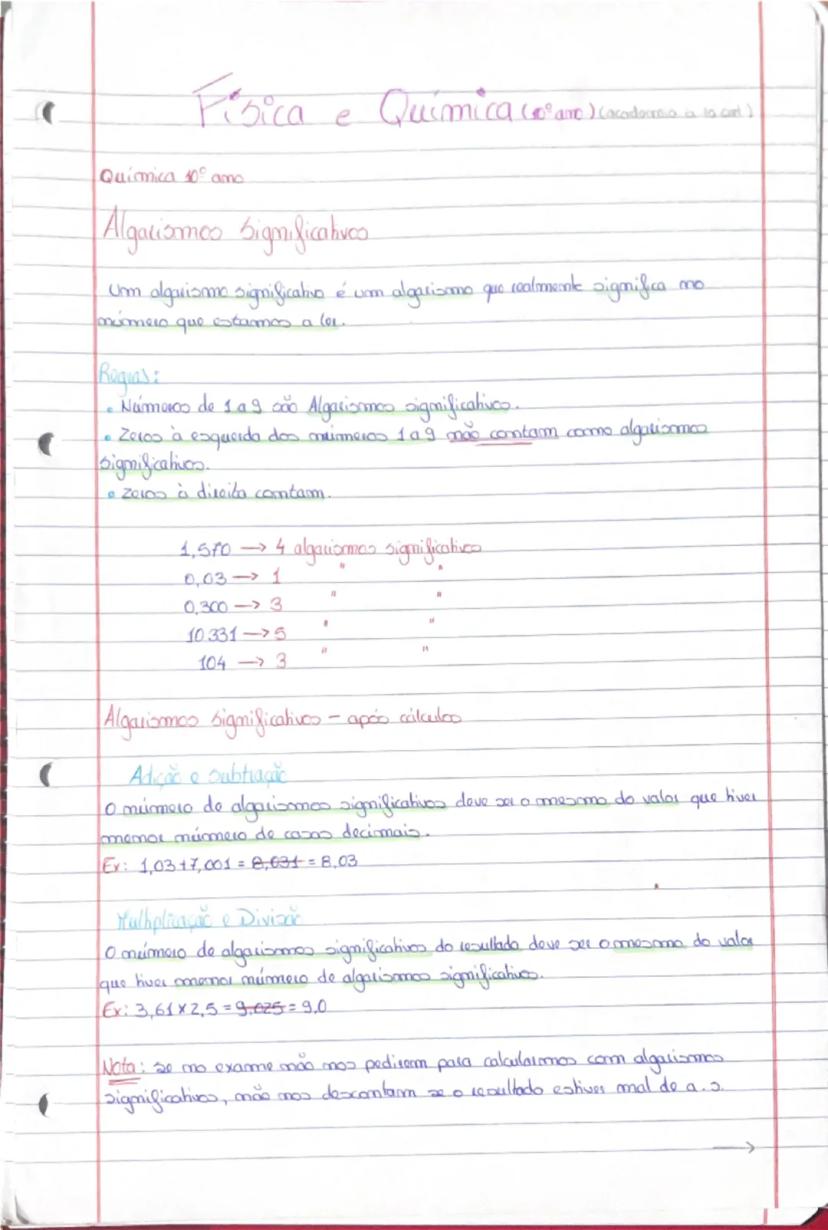 Física e Química (10º ano) (academia à la card)
Química 10º ano
Algarismos Significativos
Um algarismo significativo é um algarismo que realmente significa no
número que estamos a ler.
Regras:
• Números de 1 a 9 são Algarismos significativos.
• Zeros à esquerda dos números 1 a 9 não contam como algarismos
significativos.
• Zeros à direita contam.
1,570 → 4 algarismos significativos
0,03 → 1 " "
0,300 → 3 " "
10.331 → 5 " "
104 → 3 " "
Algarismos Significativos - após cálculos
Adição e subtração
O número de algarismos significativos deve ser o mesmo do valor que tiver
menor número de casas decimais.
Ex: 1,03+7,001 = 8,031 = 8,03
Multiplicação e Divisão
O número de algarismos significativos do resultado deve ser o mesmo do valor
que tiver menor número de algarismos significativos.
Ex: 3,61 x 2,5 = 9,025 = 9,0
Nota: se no exame não nos pedirem para calcularmos com algarismos
significativos, não nos descontam se o resultado estiver mal de a.s.
→